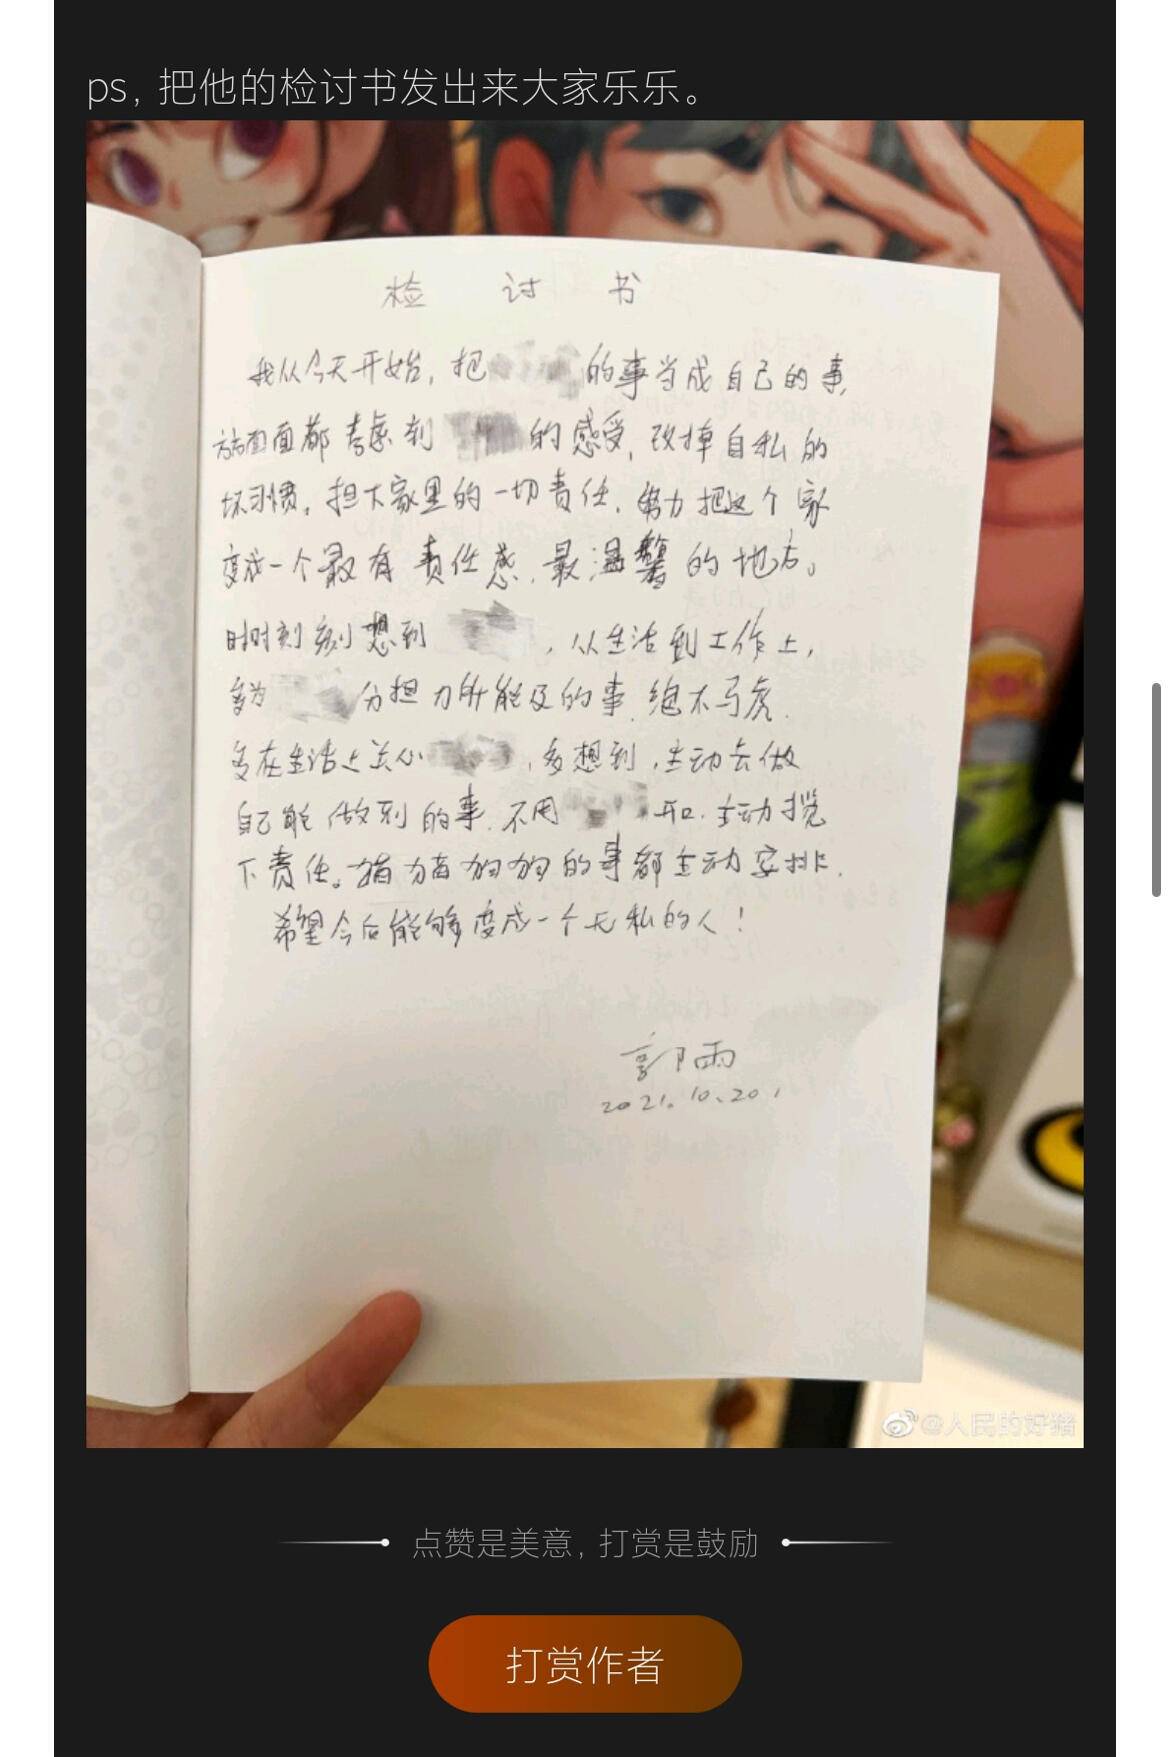 ps，把他的检讨书发出来大家乐乐。
检 讨 书
我从今天开始，把 的事当成自己的事，
方方面面都考虑到 的感受，改掉自私的
坏习惯。担下家里的一切责任，努力把这个家
变成一个最有责任感，最温馨的地方。
时时刻刻想到 ，从生活到工作上，
多为 分担力所能及的事，绝不马虎，
多在生活上关心 ，多想到，主动去做
自己能做到的事，不用 开口，主动揽
下责任。猫猫狗狗的事都主动安排，
希望今后能够变成一个无私的人！
郭雨
2021.10.20，
@人民的好猪
点赞是美意，打赏是鼓励
打赏作者